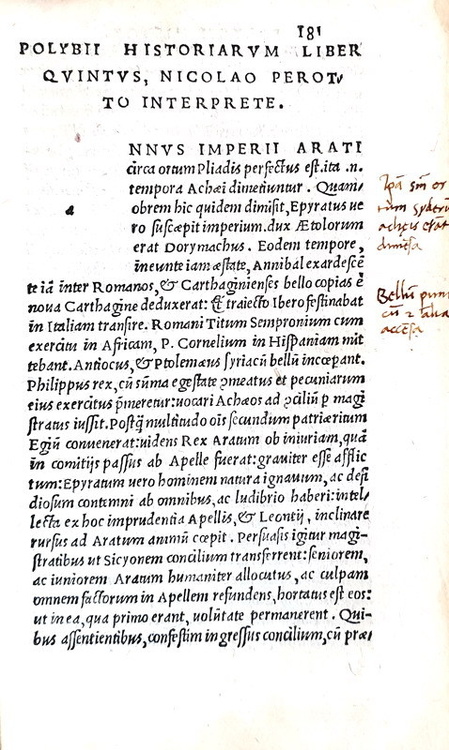 181
POLYBII HISTORIARVM LIBER
QVINTVS, NICOLAO PEROT/
TO INTERPRETE.
a
NNVS IMPERII ARATI
circa ortum Pliadis perfectus est. ita .n.
tempora Achæi dimetiuntur . Quam/
obrem hic quidem dimisit, Epyratus ue
ro suscæpit imperium. dux Ætolorum
erat Dorymachus . Eodem tempore,
ineunte iam æstate, Annibal exardescẽ
te iã inter Romanos, & Carthaginienses bello copias ẽ
noua Carthagine deduxerat: Et traiecto Ibero festinabat
in Italiam transire. Romani Titum Sempronium cum
exercitu in Africam, P. Cornelium in Hispaniam mit
tebant. Antiocus, & Ptolemæus syriacũ bellũ incœpant.
Philippus rex, cũ sũma egestate ꝯmeatus et pecuniarum
eius exercitus p̃meretur: uocari Achæos ad ꝯciliũ p magi
stratus iussit. Postq̃ multitudo oĩs secundum patriæ ritum
Egiũ conuenerat: uidens Rex Aratum ob iniuriam, quã
in comitijs passus ab Apelle fuerat: grauiter esse afflic
tum: Epyratum uero hominem natura ignauum, ac desi
diosum contemni ab omnibus, ac ludibrio haberi: intel/
lecta ex hoc imprudentia Apellis, & Leontij, inclinare
rursus ad Aratum animũ cœpit . Persuasis igitur magi-
stratibus ut Sicyonem concilium transferrent: seniorem,
ac iuniorem Aratum humaniter allocutus, ac culpam
omnem factorum in Apellem refundens, hortatus est eos:
ut in ea, qua primo erant, volũtate permanerent . Qui-
bus assentientibus, confestim ingressus concilium, cũ præ/
dimẽsa
Bellũ puni
accẽsa